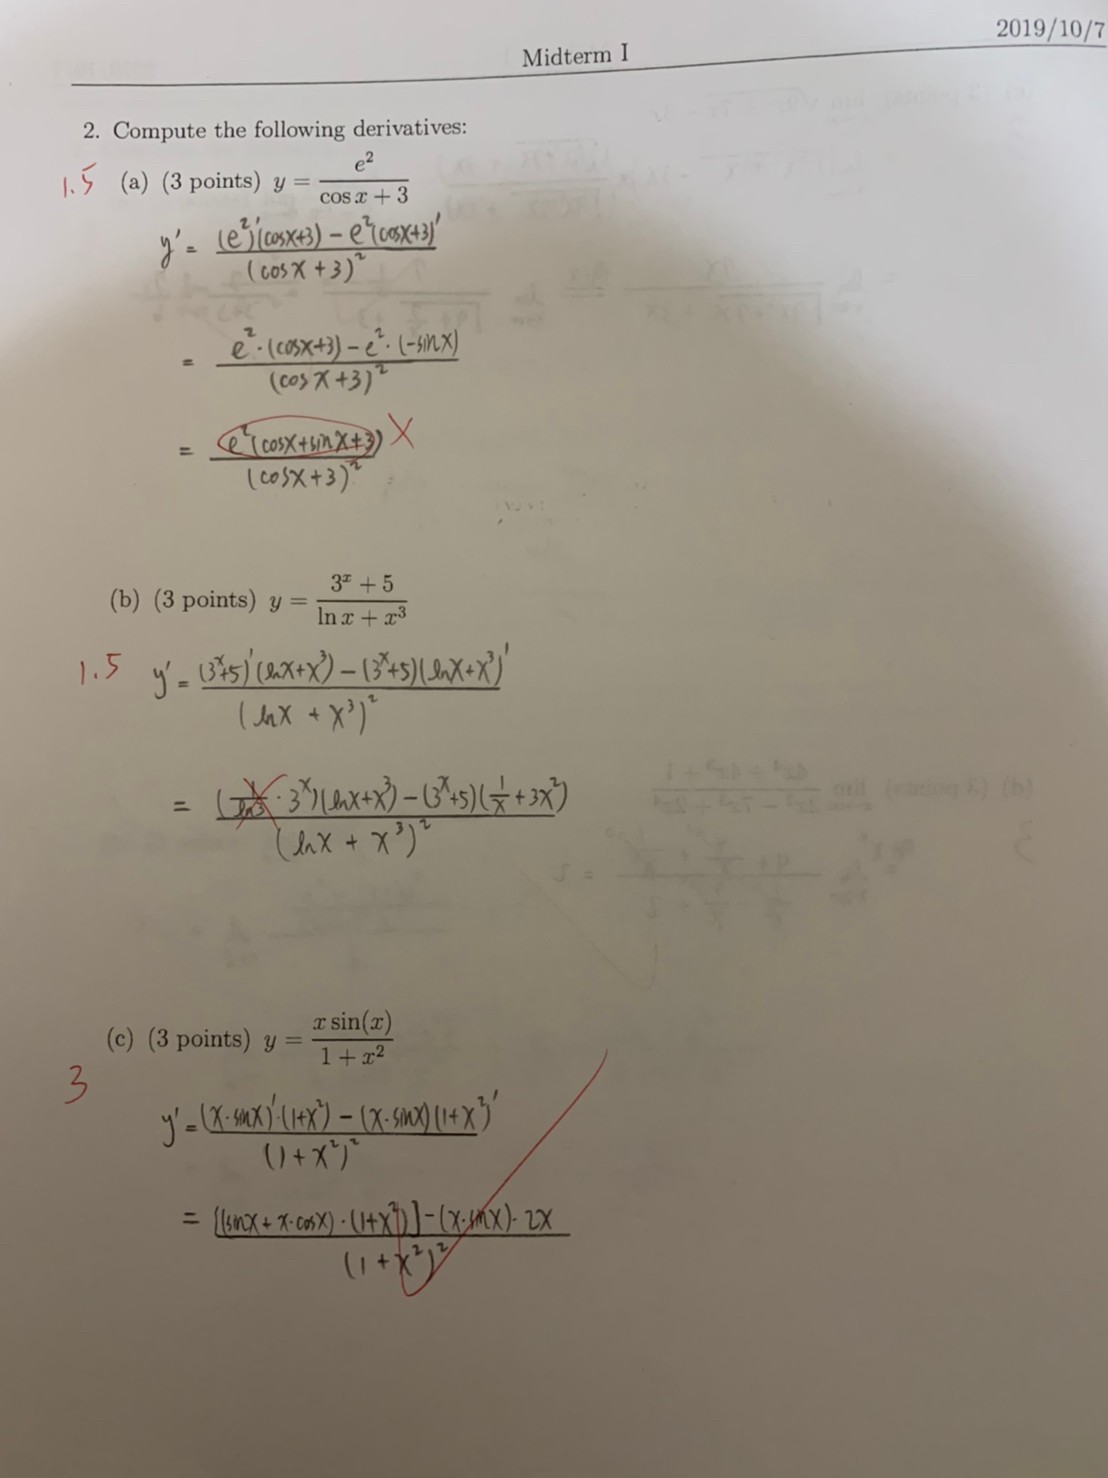 2019/10/7
Midterm I
2. Compute the following derivatives:
1.5 (a) (3 points) y = e^2 / (cos x + 3)
y' = ((e^2)'(cosx+3) - e^2(cosx+3)') / (cosx+3)^2
= (e^2·(cosx+3) - e^2·(-sinx)) / (cosx+3)^2
= (e^2(cosx+sinx+3)) / (cosx+3)^2 X
(b) (3 points) y = (3^x + 5) / (ln x + x^3)
1.5 y' = ((3^x+5)'(lnx+x^3) - (3^x+5)(lnx+x^3)') / (lnx + x^3)^2
= ((1/ln3 · 3^x)(lnx+x^3) - (3^x+5)(1/x + 3x^2)) / (lnx + x^3)^2
(c) (3 points) y = x sin(x) / (1 + x^2)
3
y' = ((x·sinx)'·(1+x^2) - (x·sinx)(1+x^2)') / (1+x^2)^2
= ([(sinx + x·cosx)·(1+x^2)] - (x·sinx)·2x) / (1+x^2)^2